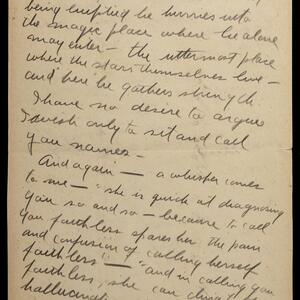 being emptied he hurries into
the magic place where he alone
may enter — the uttermost place
where the stars themselves live —
and here he gathers strength
I have no desire to argue
I wish only to sit and call
you names —
And again — a whisper comes
to me — "she is quick at diagnosing
you so and so — because to call
you faithless spares her the pain
and confusion of calling herself
faithless" — "and in calling you
faithless, she can